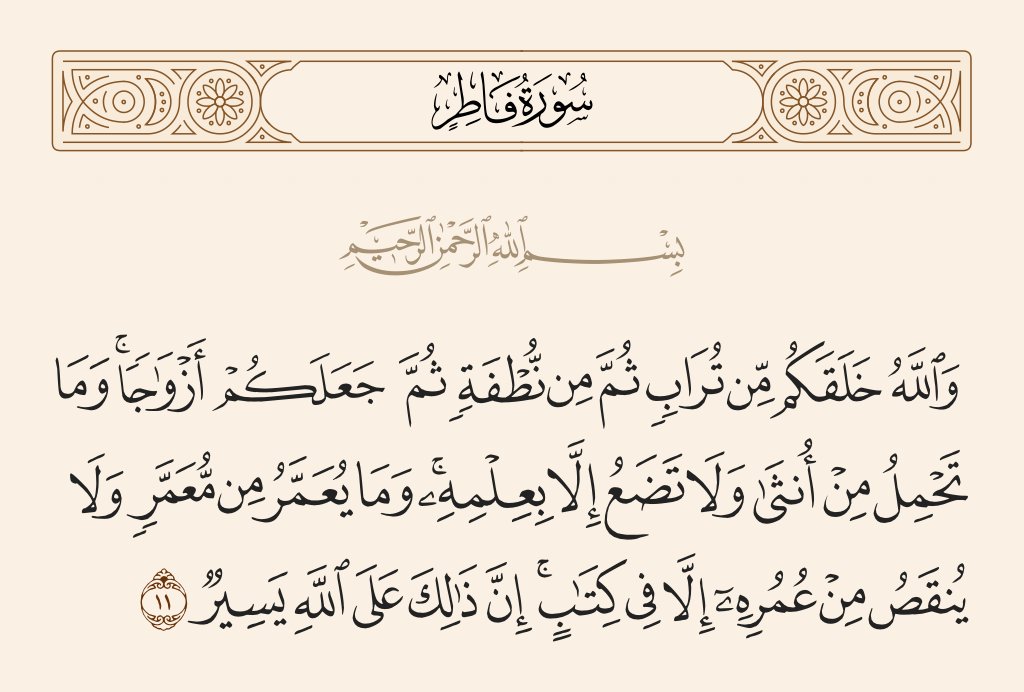 سُورَةُ فَاطِرٍ
بِسْمِ ٱللَّهِ ٱلرَّحْمَٰنِ ٱلرَّحِيمِ
وَٱللَّهُ خَلَقَكُم مِّن تُرَابٍ ثُمَّ مِن نُّطْفَةٍ ثُمَّ جَعَلَكُمْ أَزْوَٰجًا ۚ وَمَا
تَحْمِلُ مِنْ أُنثَىٰ وَلَا تَضَعُ إِلَّا بِعِلْمِهِۦ ۚ وَمَا يُعَمَّرُ مِن مُّعَمَّرٍ وَلَا
يُنقَصُ مِنْ عُمُرِهِۦٓ إِلَّا فِى كِتَٰبٍ ۚ إِنَّ ذَٰلِكَ عَلَى ٱللَّهِ يَسِيرٌ ١١